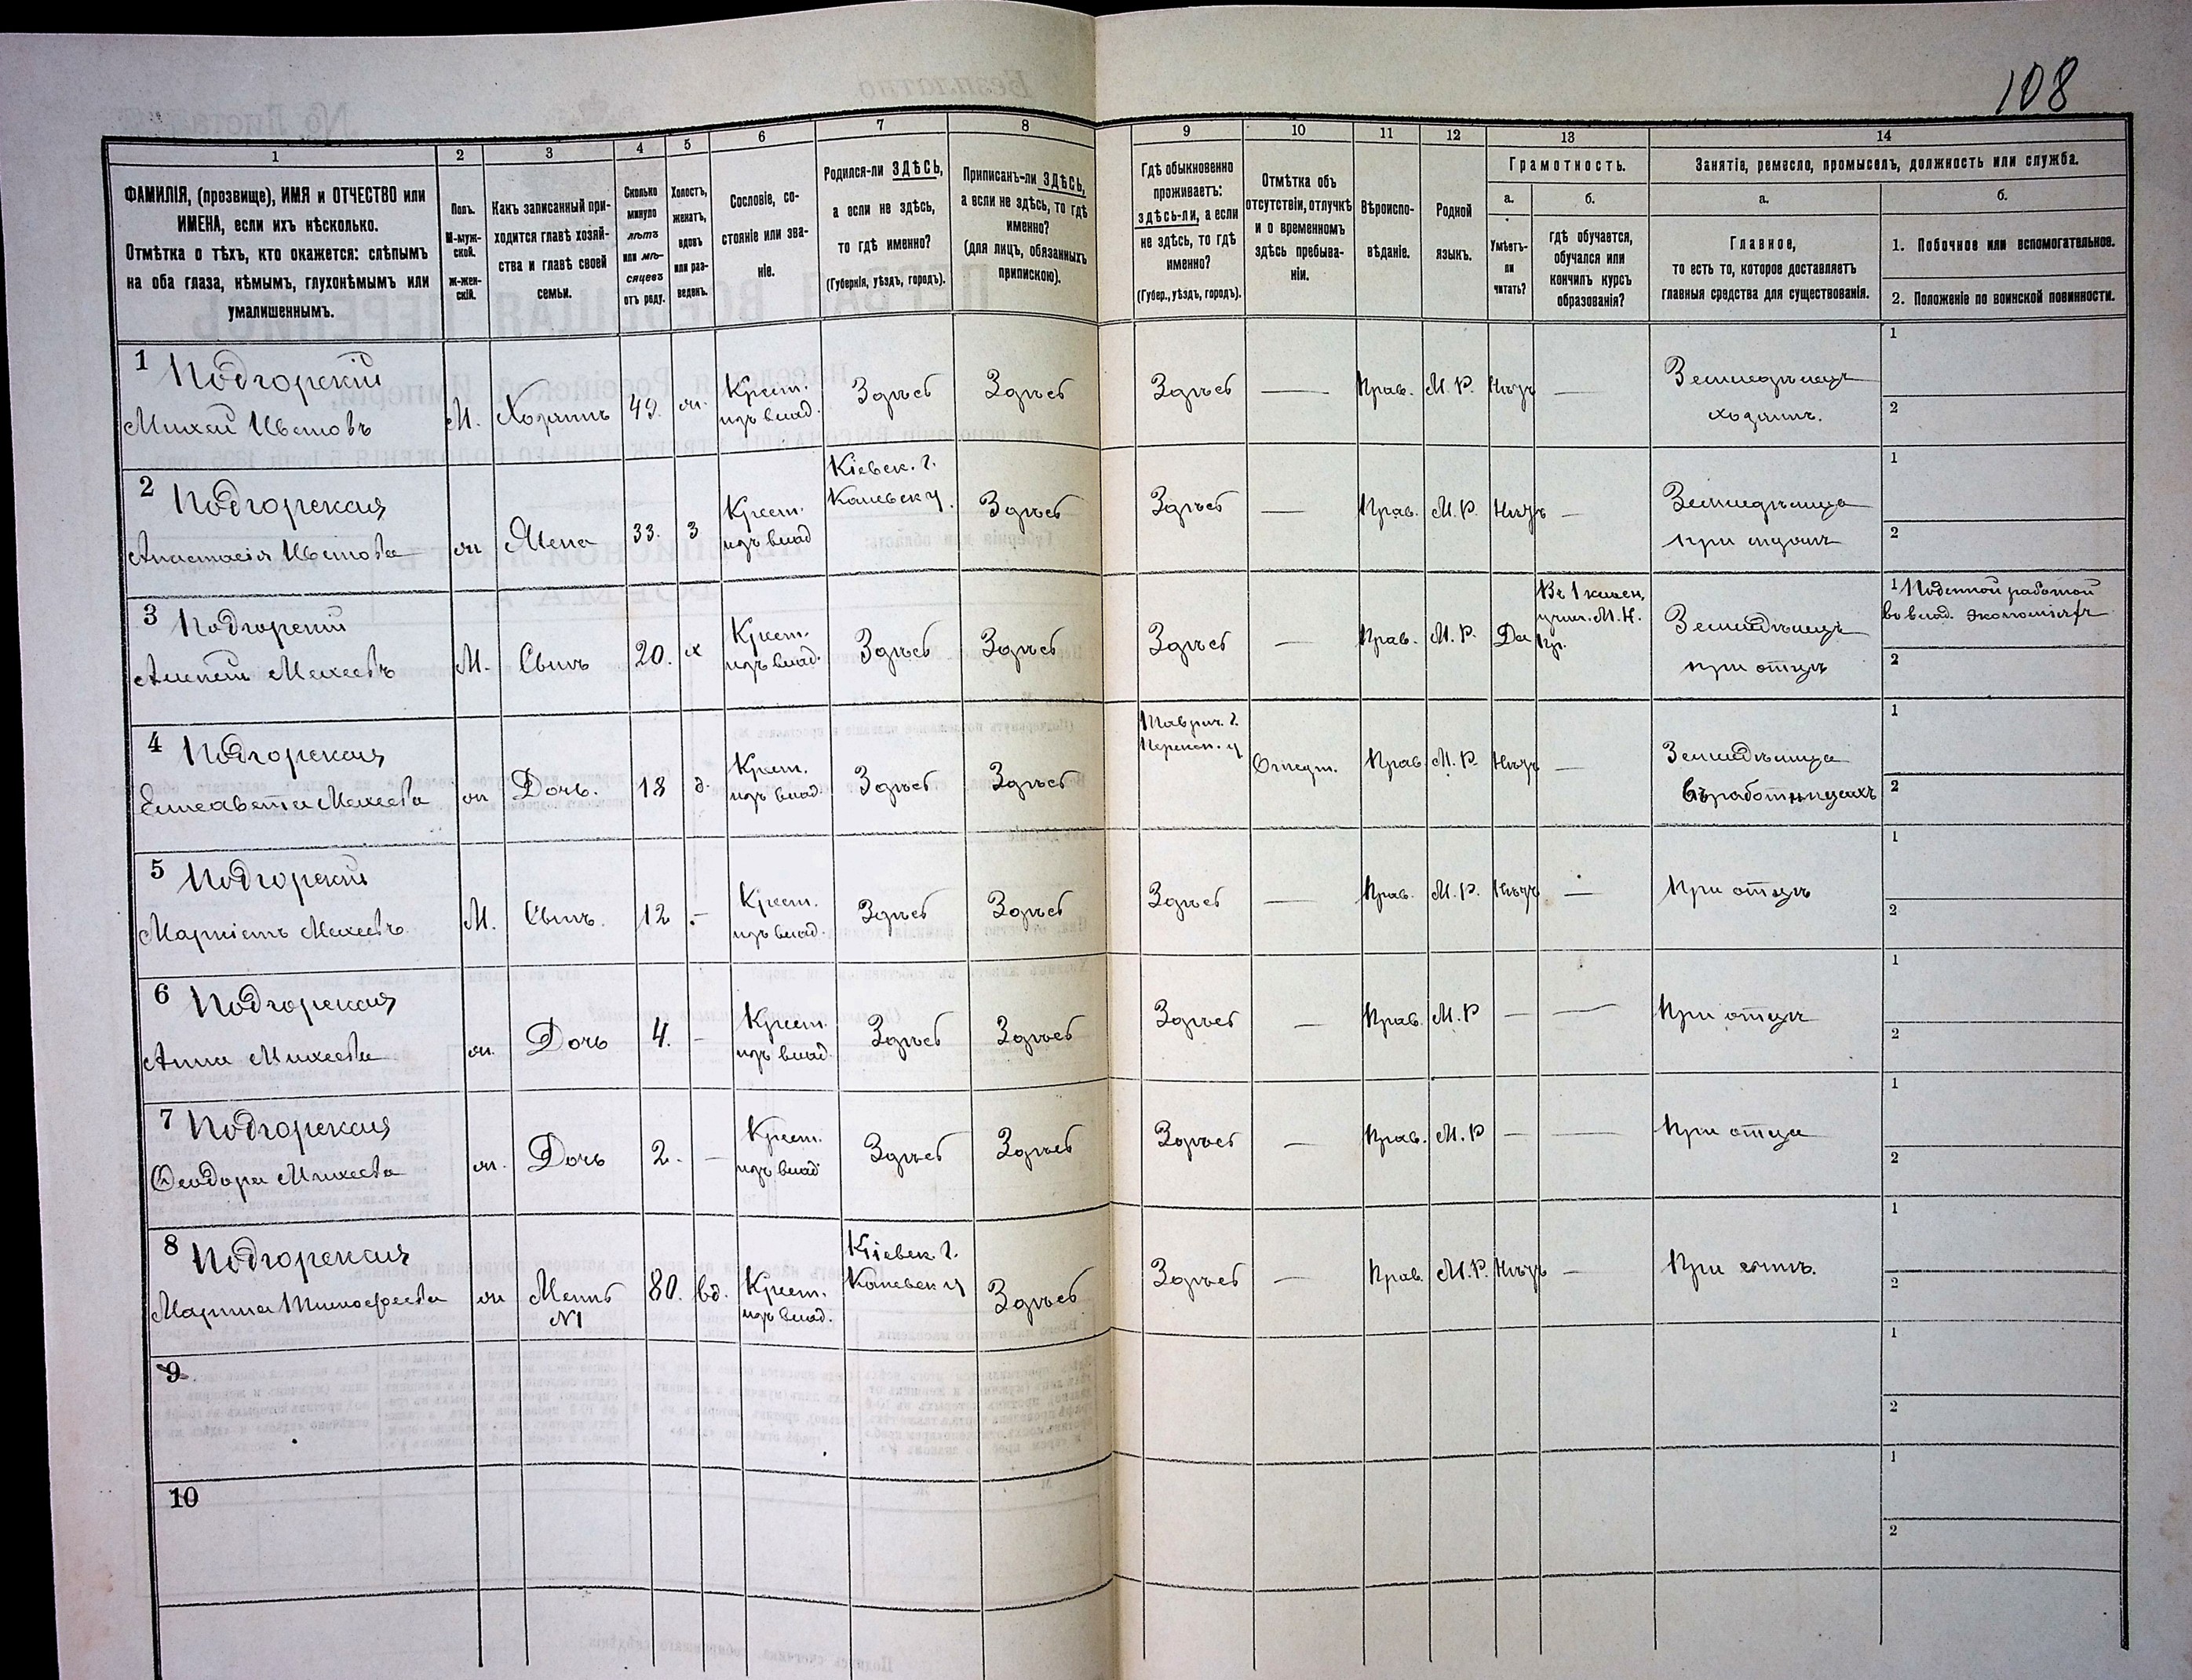 108
1
2
3
4
5
6
7
8
9
10
11
12
13
14
ФАМИЛІЯ, (прозвище), ИМЯ и ОТЧЕСТВО или
ИМЕНА, если ихъ нѣсколько.
Отмѣтка о тѣхъ, кто окажется: слѣпымъ
на оба глаза, нѣмымъ, глухонѣмымъ или
умалишеннымъ.
Полъ.
М-муж-
ской.
Ж-жен-
скій.
Какъ записанный при-
ходится главѣ хозяй-
ства и главѣ своей
семьи.
Сколько
минуло
лѣтъ
или мѣ-
сяцевъ
отъ роду.
Холостъ,
женатъ,
вдовъ
или раз-
веденъ.
Сословіе, со-
стояніе или зва-
ніе.
Родился-ли ЗДѢСЬ,
а если не здѣсь,
то гдѣ именно?
(Губернія, уѣздъ, городъ).
Приписанъ-ли ЗДѢСЬ,
а если не здѣсь, то гдѣ
именно?
(для лицъ, обязанныхъ
припискою).
Гдѣ обыкновенно
проживаетъ:
здѣсь-ли, а если
не здѣсь, то гдѣ
именно?
(Губер., уѣздъ, городъ).
Отмѣтка объ
отсутствіи, отлучкѣ
и о временномъ
здѣсь пребыва-
ніи.
Вѣроиспо-
вѣданіе.
Родной
языкъ.
Грамотность.
а.
Умѣетъ-
ли
читать?
б.
гдѣ обучается,
обучался или
кончилъ курсъ
образованія?
Занятіе, ремесло, промыселъ, должность или служба.
а.
Главное,
то есть то, которое доставляетъ
главныя средства для существованія.
б.
1. Побочное или вспомогательное.
2. Положеніе по воинской повинности.
1 Подгорскій
Михей Ивановъ
М. Хозяинъ 49. ж. Крест. изъ влад. Здѣсь Здѣсь Здѣсь — Прав. М. Р. Нѣтъ — Земледѣлецъ
хозяинъ.
1
2
2 Подгорская
Анастасія Иванова
ж Жена 33. З Крест. изъ влад Кіевск. г. Каневск у. Здѣсь Здѣсь — Прав. М. Р. Нѣтъ — Земледѣлица
при мужѣ
1
2
3 Подгорскій
Алексѣй Михеевъ
М. Сынъ 20. х Крест. изъ влад. Здѣсь Здѣсь Здѣсь — Прав. М. Р. Да Въ 1 клас. учил. М. Н. Пр. Земледѣлецъ
при отцѣ
1 Поденной работой
во влад. экономіяхъ
2
4 Подгорская
Елисавета Михеева
ж Дочь. 18 д. Крест. изъ влад. Здѣсь Здѣсь Таврич. г. Перекоп. у Отсут. Прав М. Р. Нѣтъ — Земледѣлица
въ работницахъ
1
2
5 Подгорскій
Михеевъ
М. Сынъ. 12 — Крест. изъ влад. Здѣсь Здѣсь Здѣсь — Прав. М. Р. Нѣтъ — При отцѣ
1
2
6 Подгорская
Анна Михеева
ж. Дочь 4. — Крест. изъ влад. Здѣсь Здѣсь Здѣсь — Прав. М. Р — — При отцѣ
1
2
7 Подгорская
Ѳеодора Михеева
ж. Дочь 2. — Крест. изъ влад Здѣсь Здѣсь Здѣсь — Прав. М. Р — — При отца
1
2
8 Подгорская
Марина Тимофеева
ж Мать №1 80. вд. Крест. изъ влад. Кіевск. г. Каневск у Здѣсь Здѣсь — Прав. М. Р. Нѣтъ — При сынѣ.
1
2
9
1
2
10
1
2